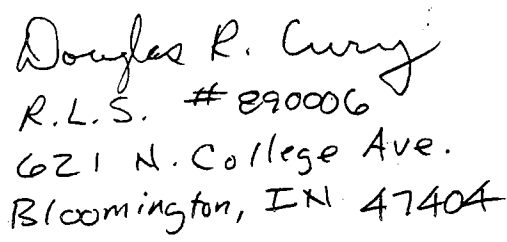 Douglas R. Curry
R.L.S. #890006
621 N. College Ave.
Bloomington, IN 47404